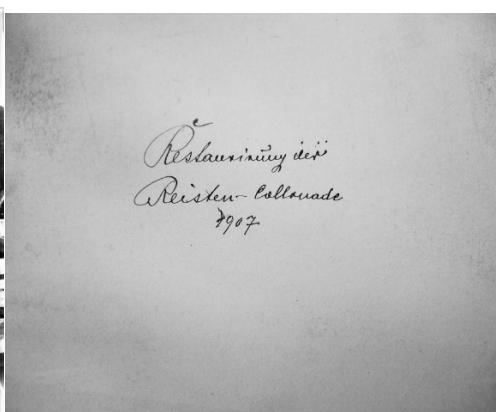 Restaurirung der
Reisten-Collonade
1907